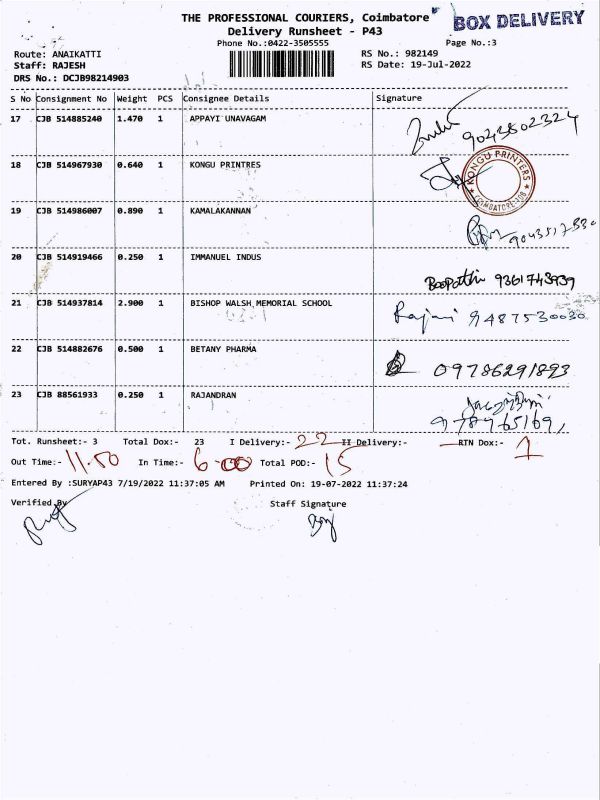 THE PROFESSIONAL COURIERS, Coimbatore
BOX DELIVERY
Delivery Runsheet - P43
Phone No.:0422-3505555
Page No.:3
Route: ANAIKATTI
RS No.: 982149
Staff: RAJESH
RS Date: 19-Jul-2022
DRS No.: DCJB98214903
S No Consignment No Weight PCS Consignee Details Signature
17 CJB 514885240 1.470 1 APPAYI UNAVAGAM 9043802324
18 CJB 514967930 0.640 1 KONGU PRINTRES
KONGU PRINTERS
19 CJB 514986007 0.890 1 KAMALAKANNAN
20 CJB 514919466 0.250 1 IMMANUEL INDUS
Boopathi 9361743939
21 CJB 514937814 2.900 1 BISHOP WALSH MEMORIAL SCHOOL
Rajani 9487530030
22 CJB 514882676 0.500 1 BETANY PHARMA
09786291893
23 CJB 88561933 0.250 1 RAJANDRAN
Tot. Runsheet:- 3 Total Dox:- 23 I Delivery:- 22 II Delivery:- RTN Dox:- 1
Out Time:- 11.50 In Time:- 6.00 Total POD:- 15
Entered By :SURYAP43 7/19/2022 11:37:05 AM Printed On: 19-07-2022 11:37:24
Verified By Staff Signature